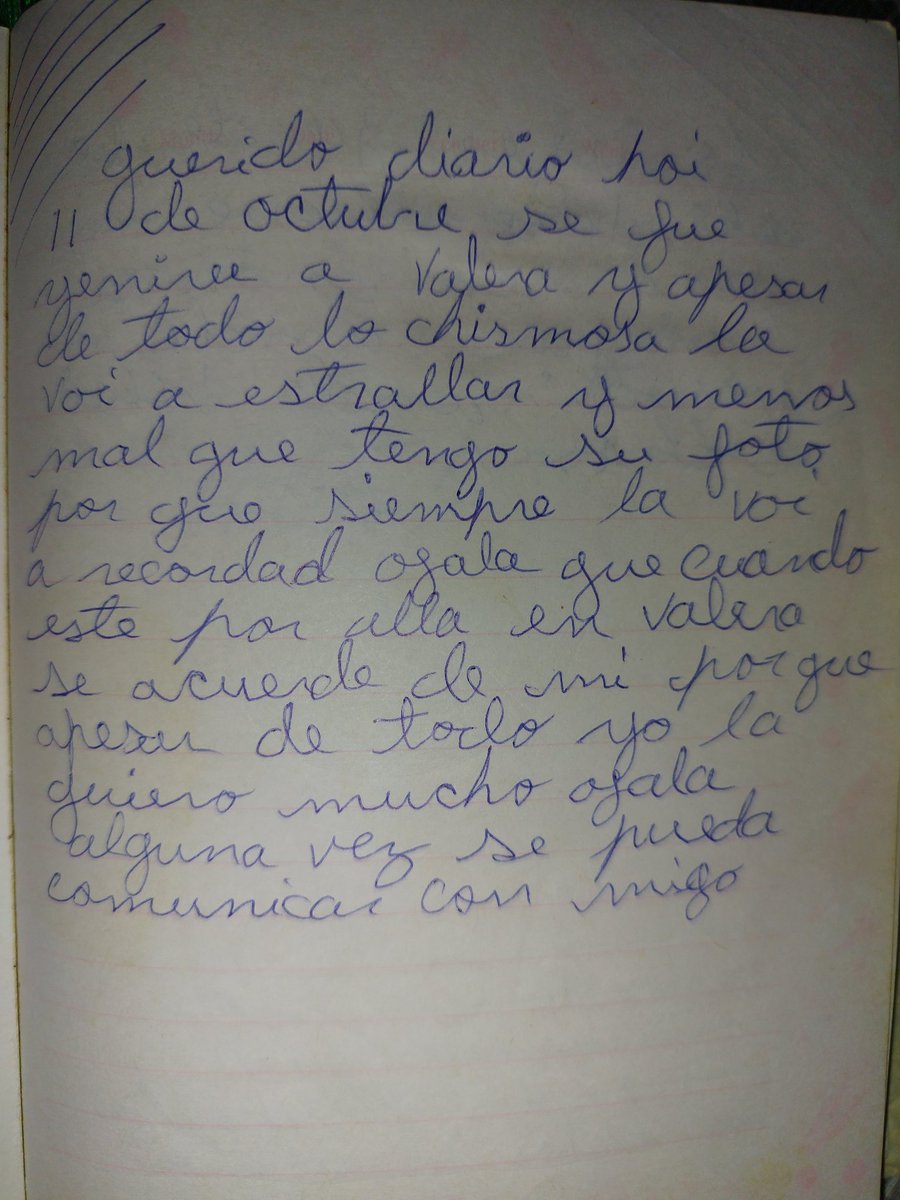 querido diario hoi
11 de octubre se fue
yeniree a Valera y apesar
de todo lo chismosa la
voi a estrallar y menos
mal que tengo su foto
por que siempre la voi
a recordad ogala que cuando
este por alla en valera
se acuerde de mi porque
apesar de todo yo la
quiero mucho ogala
alguna vez se pueda
comunicar con migo